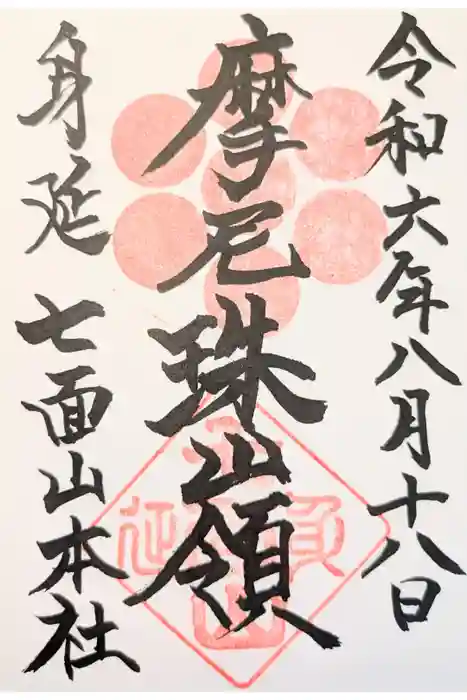 令和六年八月十八日
摩尼珠山嶺
身延 七面山本社